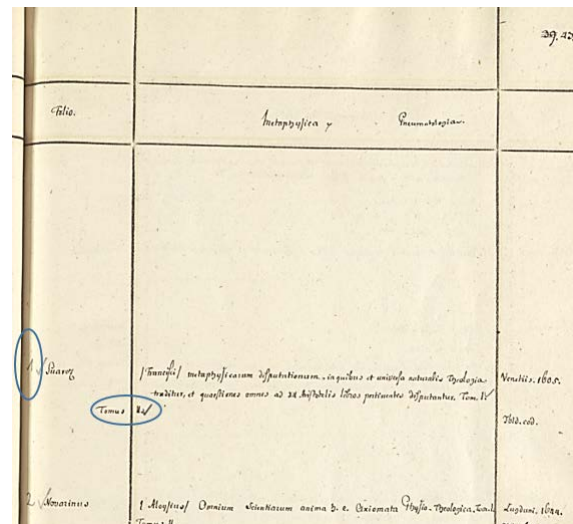 39. 42
Folio. Metaphysica & Pneumatologiae.
1 Suarez /Francisci/ metaphysicarum disputationum, in quibus et universa naturalis Theologia Venetiis. 1605.
traditur, et quaestiones omnes ad XII Aristotelis libros pertinentes disputantur. Tom. I
Tomus II Ibid. eod.
2 Novarinus / Aloysius/ Omnium Scientiarum anima h. e. Axiomata Physio-Theologica. Lugduni. 1644.
Tomus II